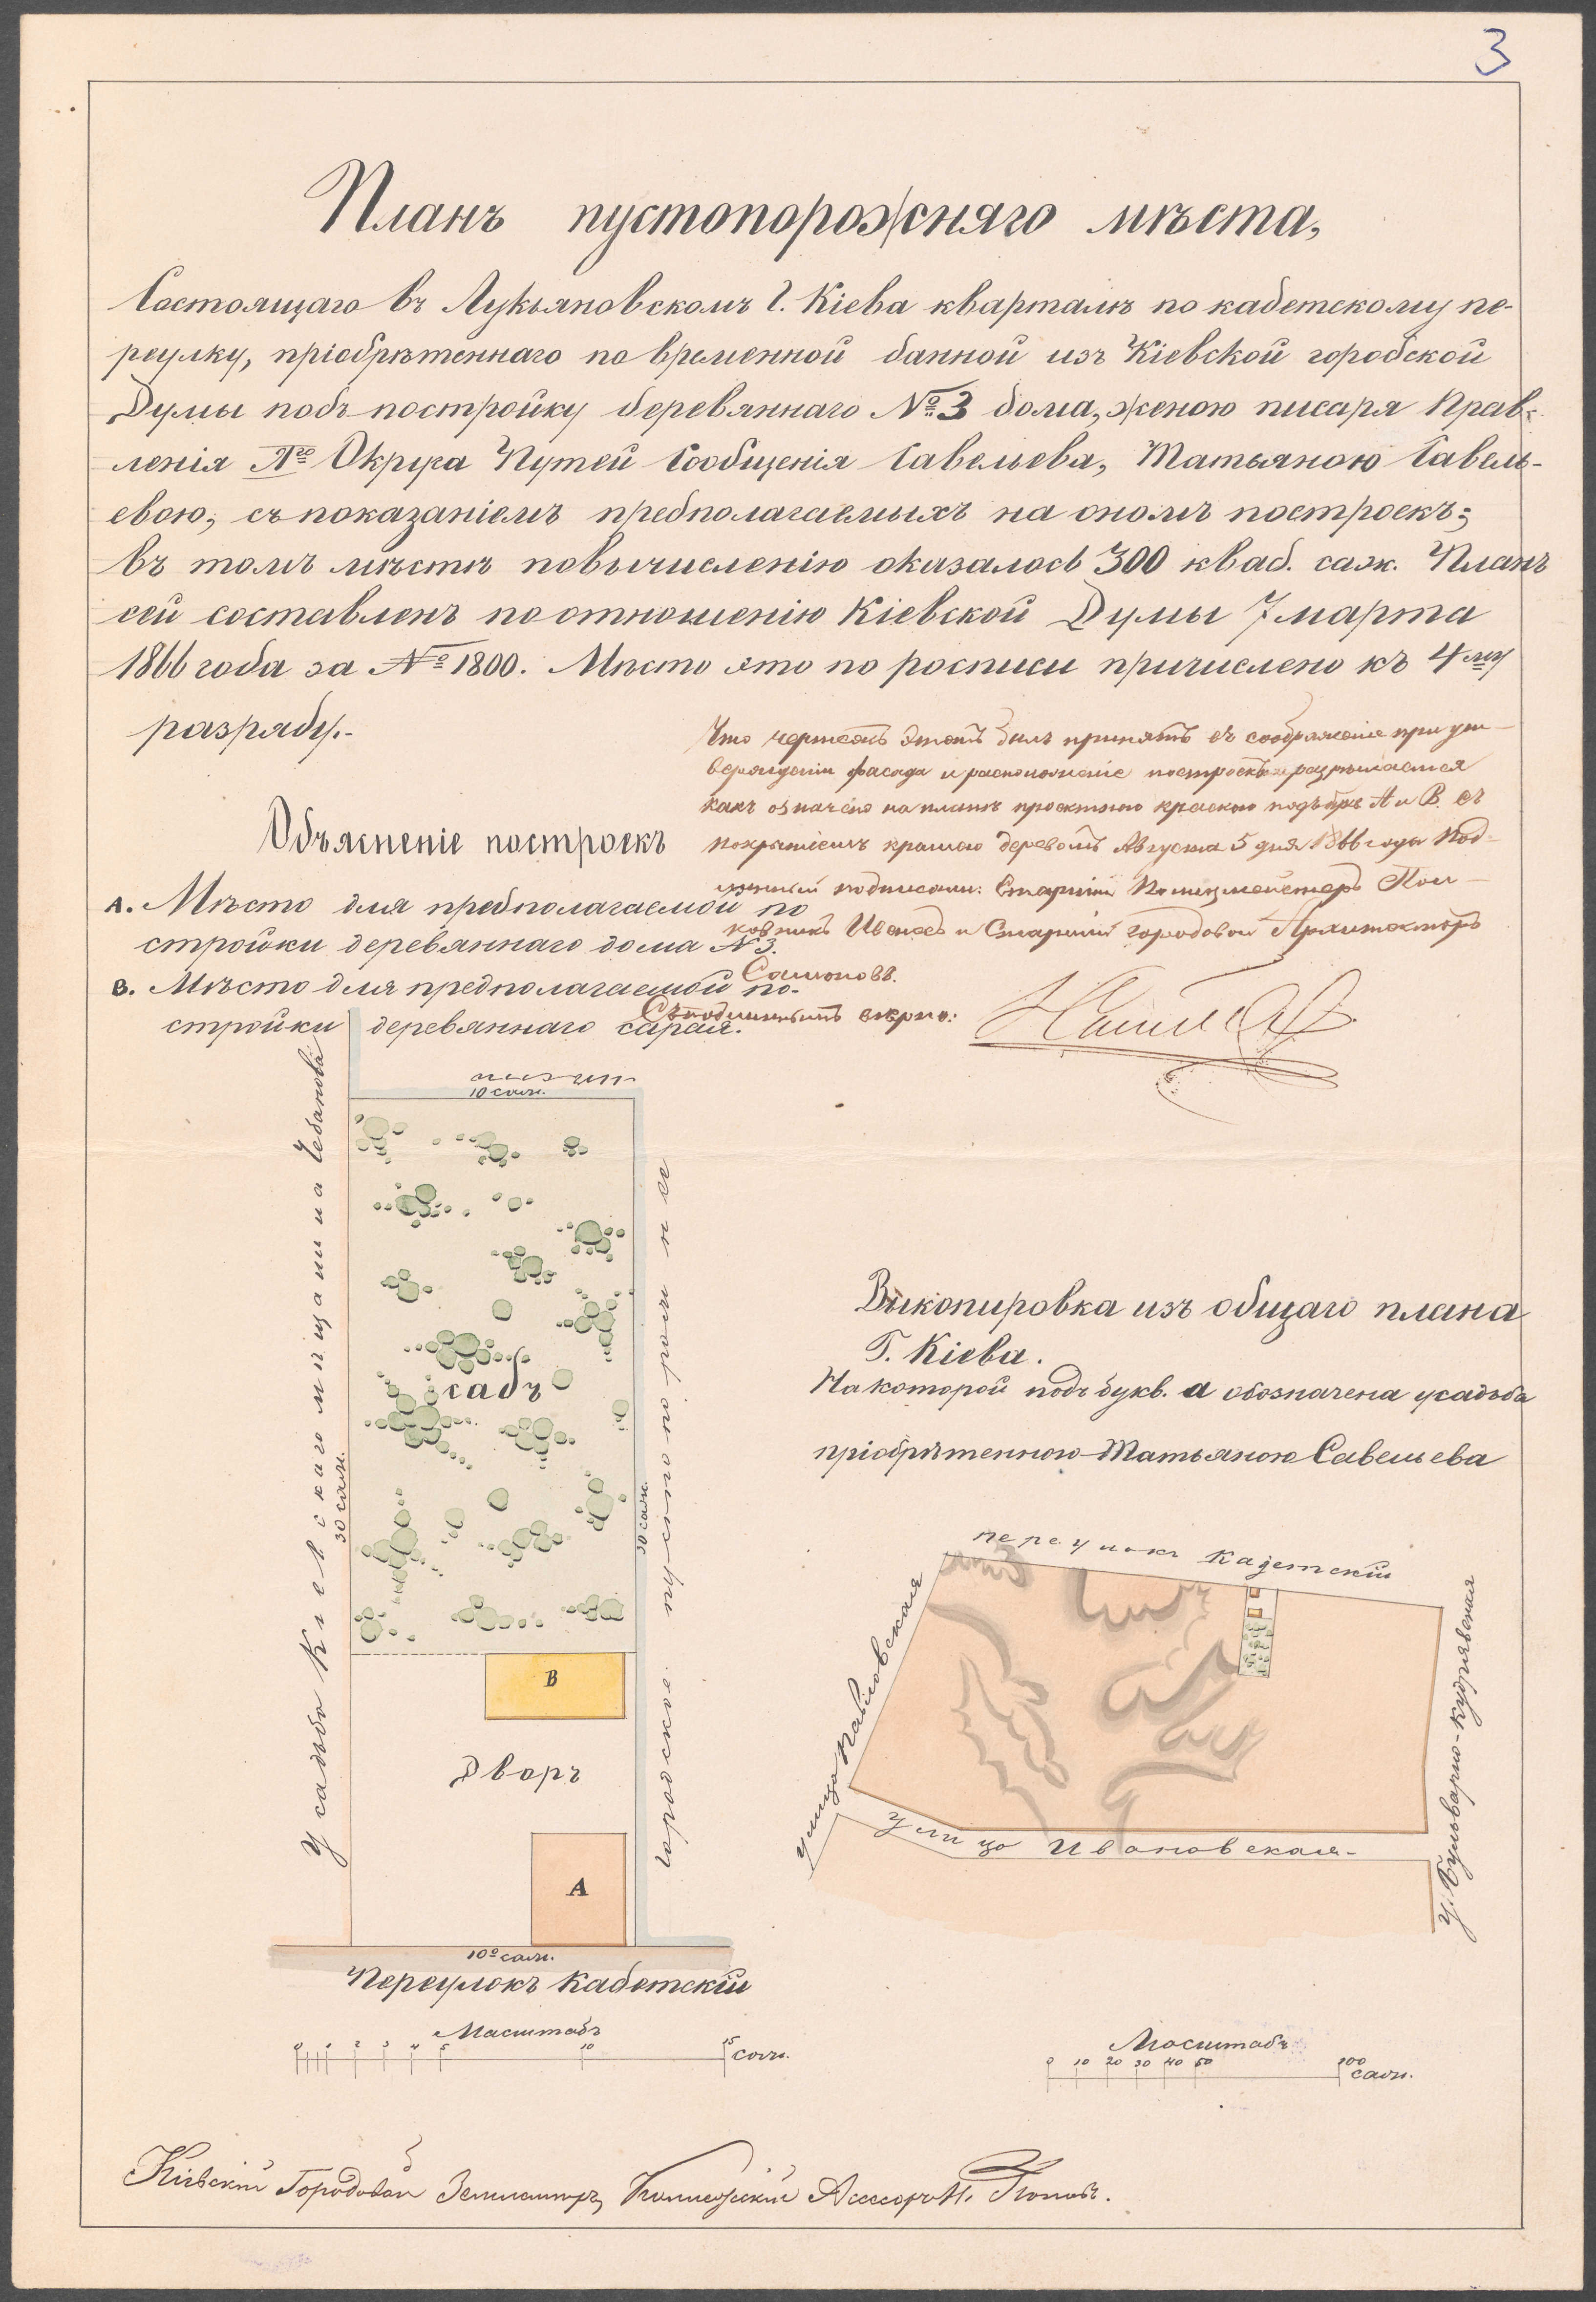 3
Планъ пустопорожняго мѣста,
Состоящаго въ Лукьяновскомъ Г. Кіева кварталѣ по кадетскому пе-
реулку, пріобрѣтеннаго по временной данной изъ Кіевской городской
Думы подъ постройку деревяннаго № 3 дома, женою писаря Прав-
ленія Округа Путей Сообщенія Савельева, Татьяною Савель-
евою, съ показаніемъ предполагаемыхъ на ономъ построекъ;
въ томъ мѣстѣ по вычисленію оказалось 300 квад. саж. Планъ
сей составленъ по отношенію Кіевской Думы 7 марта
1866 года за № 1800. Мѣсто это по росписи причислено къ 4му
разряду.-
Что чертежъ этотъ былъ принятъ въ соображеніе при ут-
вержденіи фасада и расположеніе построекъ разрѣшается
какъ означено на планѣ проэктною краскою подъ букв А и В. съ
покрытіемъ крыши деревомъ Августа 5 дня 1866 года Под-
линный подписали: Старшій Полицмейстеръ Пол-
ковникъ Ивановъ и Старшій городовой Архитекторъ
Самоновъ.
Съ подлиннымъ вѣрно:
Объясненіе построекъ
А. Мѣсто для предполагаемой по
стройки деревяннаго дома № 3.
В. Мѣсто для предполагаемой по-
стройки деревяннаго сарая.
10 саж.
Усадьба Кіевскаго мѣщанина Чебанова
30 саж.
садъ
30 саж.
городское пустопорожнее
В
Дворъ
А
10 саж.
Переулокъ Кадетскій
Масштабъ
0 1 2 3 4 5 10 15 саж.
Выкопировка изъ общаго плана
Г. Кіева.
На которой подъ букв. а обозначена усадьба
пріобрѣтенною Татьяною Савельева
переулокъ Кадетскій
улица Павловская
улица Ивановская-
у. Бульварно-кудрявская
Масштабъ
0 10 20 30 40 50 100 саж.
Кіевскій Городовой Землемѣръ, Коллежскій Ассесоръ Н. Поповъ.